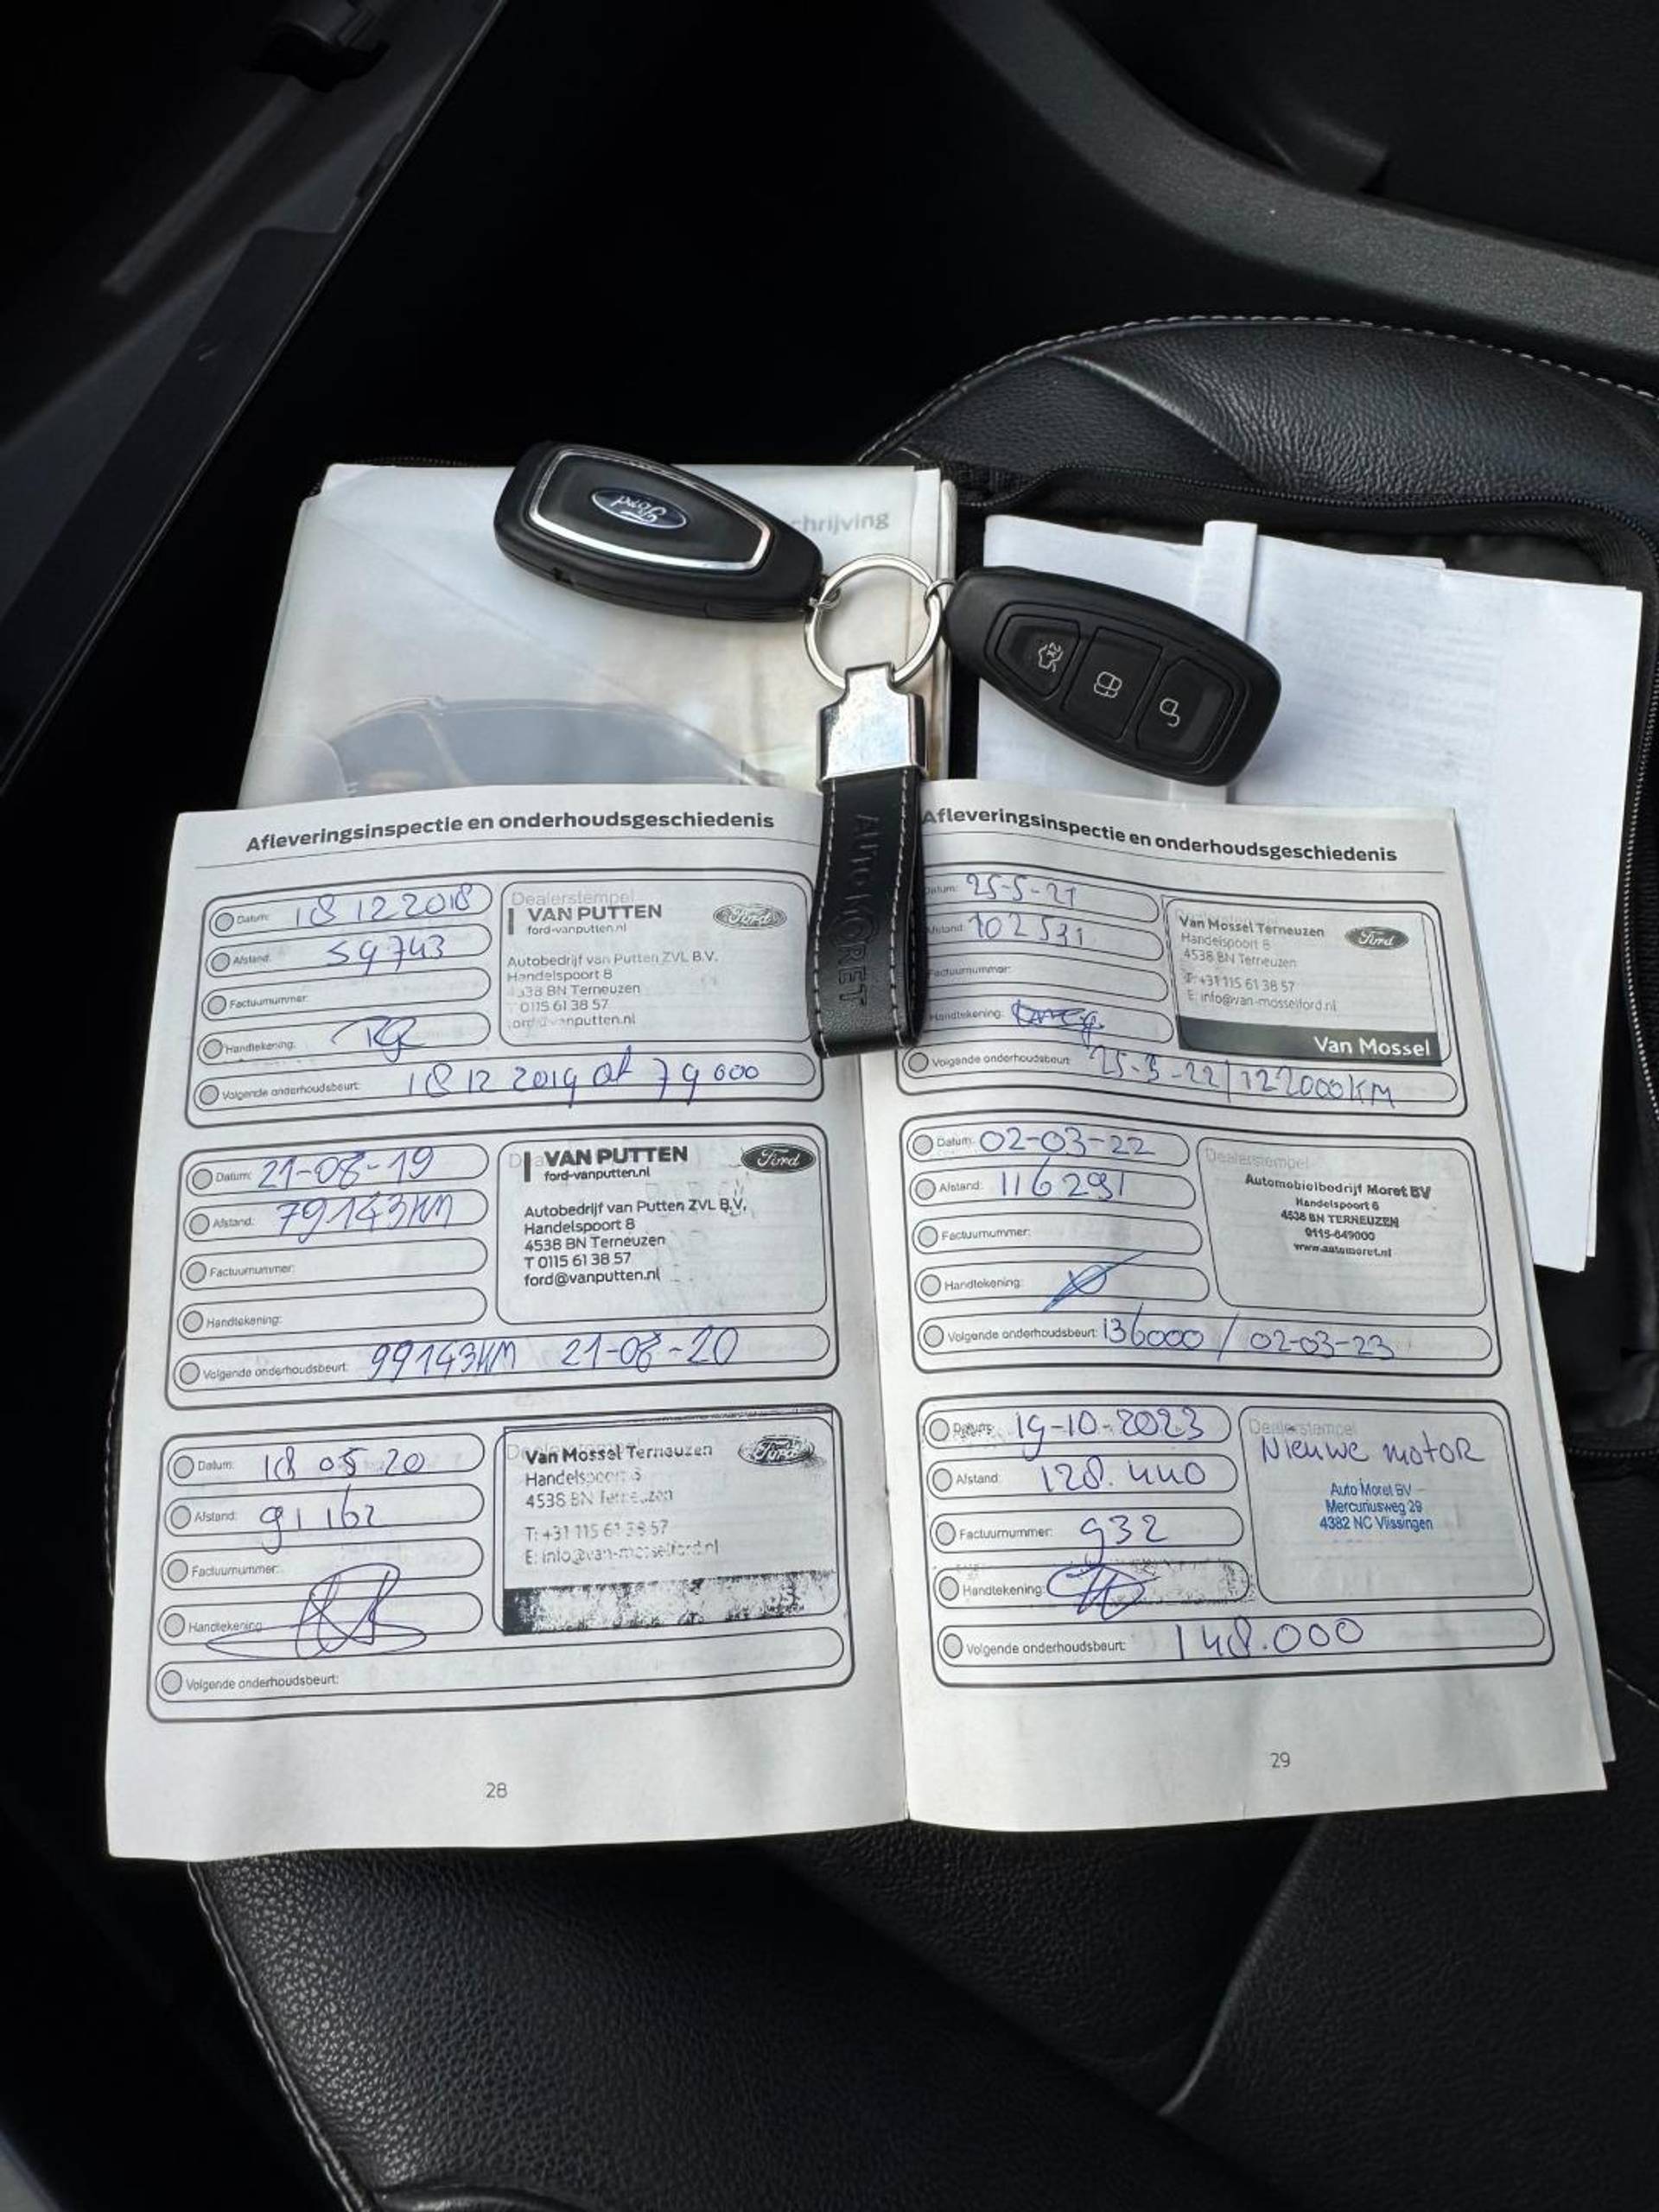 Ford
chrijving
AUTO MORET
Afleveringsinspectie en onderhoudsgeschiedenis
Datum: 18 12 2018
Afstand: 59743
Factuurnummer:
Handtekening:
Volgende onderhoudsbeurt: 18 12 2019 of 79000
Dealerstempel
VAN PUTTEN
ford-vanputten.nl
Ford
Autobedrijf van Putten ZVL B.V.
Handelspoort 8
4538 BN Terneuzen
0115 61 38 57
ford@vanputten.nl
Datum: 21-08-19
Afstand: 79143KM
Factuurnummer:
Handtekening:
Volgende onderhoudsbeurt: 99143KM 21-08-20
VAN PUTTEN
ford-vanputten.nl
Ford
Autobedrijf van Putten ZVL B.V.
Handelspoort 8
4538 BN Terneuzen
T 0115 61 38 57
ford@vanputten.nl
Datum: 18 05 20
Afstand: 91162
Factuurnummer:
Handtekening:
Volgende onderhoudsbeurt:
Van Mossel Terneuzen
Ford
Handelspoort 8
4538 BN Terneuzen
T: +31 115 61 38 57
E: info@van-mosselford.nl
28
Afleveringsinspectie en onderhoudsgeschiedenis
Datum: 25-5-21
Afstand: 102531
Factuurnummer:
Handtekening:
Volgende onderhoudsbeurt: 25-5-22 / 122000KM
Van Mossel Terneuzen
Handelspoort 8
4538 BN Terneuzen
Ford
T: +31 115 61 38 57
E: info@van-mosselford.nl
Van Mossel
Datum: 02-03-22
Afstand: 116291
Factuurnummer:
Handtekening:
Volgende onderhoudsbeurt: 136000 / 02-03-23
Dealerstempel
Automobielbedrijf Moret BV
Handelspoort 6
4538 BN TERNEUZEN
0115-649000
www.automoret.nl
Datum: 19-10-2023
Afstand: 128.440
Factuurnummer: 932
Handtekening:
Volgende onderhoudsbeurt: 148.000
Dealerstempel
Nieuwe motor
Auto Moret BV
Mercuriusweg 29
4382 NC Vlissingen
29